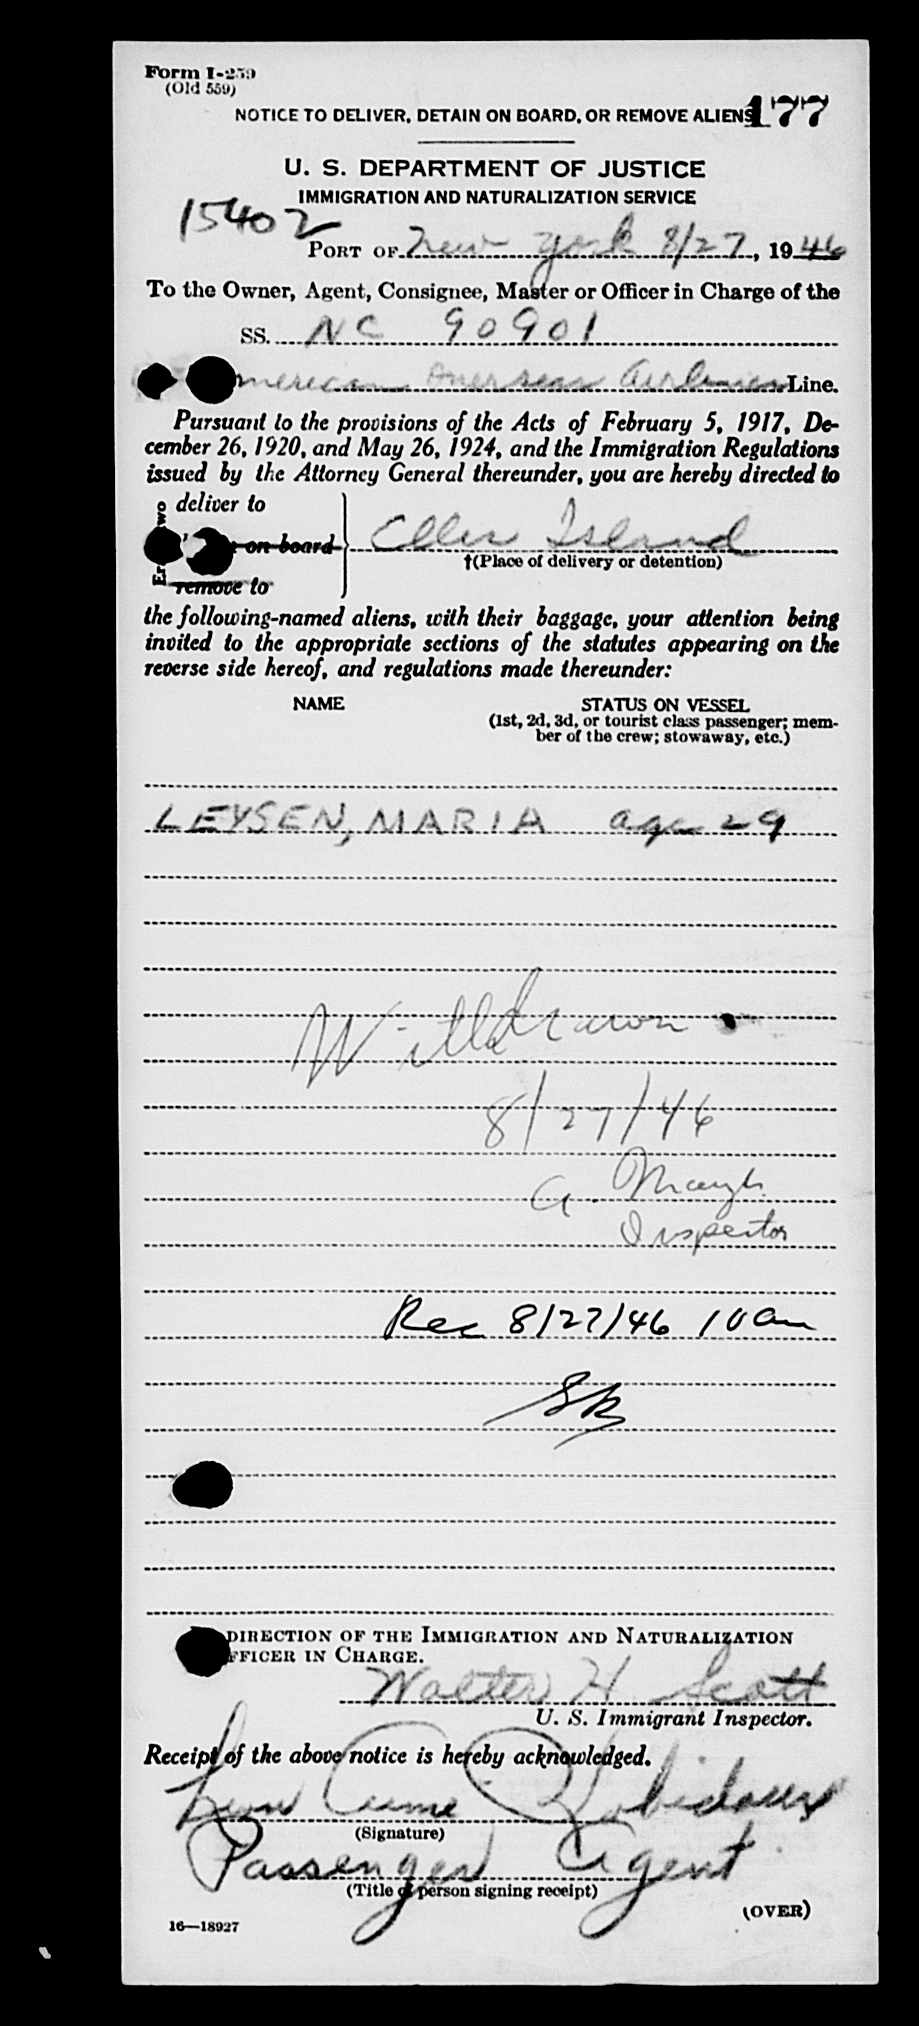 Form I-259
(Old 559)
NOTICE TO DELIVER, DETAIN ON BOARD, OR REMOVE ALIENS 177
U. S. DEPARTMENT OF JUSTICE
IMMIGRATION AND NATURALIZATION SERVICE
15402
PORT OF New York 8/27, 1946
To the Owner, Agent, Consignee, Master or Officer in Charge of the
SS. NC 90901
American Overseas Airlines Line.
Pursuant to the provisions of the Acts of February 5, 1917, De-
cember 26, 1920, and May 26, 1924, and the Immigration Regulations
issued by the Attorney General thereunder, you are hereby directed to
deliver to
on board Ellis Island
†(Place of delivery or detention)
remove to
the following-named aliens, with their baggage, your attention being
invited to the appropriate sections of the statutes appearing on the
reverse side hereof, and regulations made thereunder:
NAME STATUS ON VESSEL
(1st, 2d, 3d, or tourist class passenger; mem-
ber of the crew; stowaway, etc.)
LEYSEN, MARIA age 29
Withdrawn
8/27/46
a.
Inspector
Rec 8/27/46 10 am
DIRECTION OF THE IMMIGRATION AND NATURALIZATION
OFFICER IN CHARGE.
Walter H. Scott
U. S. Immigrant Inspector.
Receipt of the above notice is hereby acknowledged.
(Signature)
Passenger Agent
(Title of person signing receipt)
(OVER)
16—18927